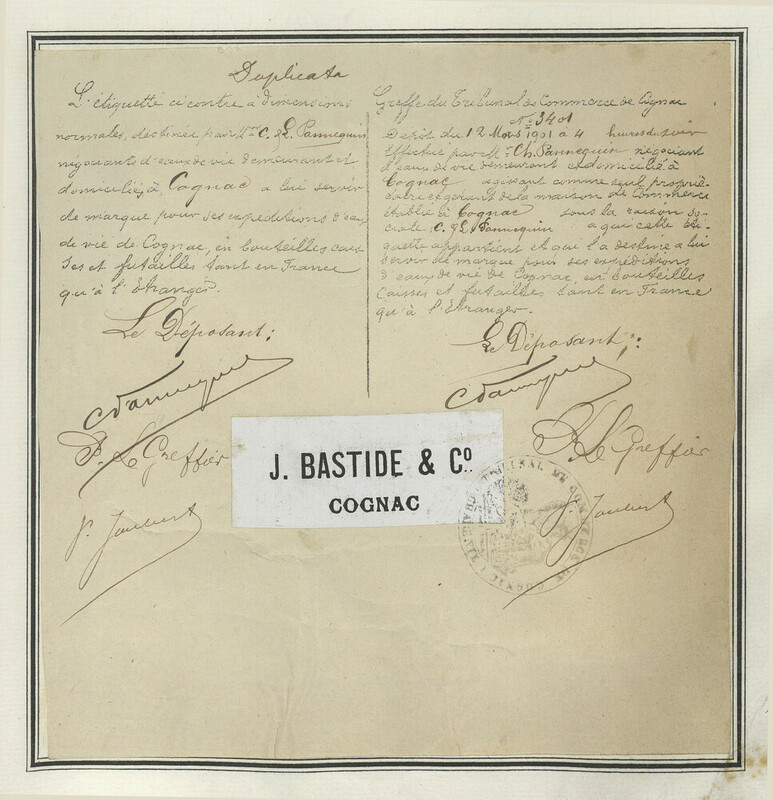 Duplicata
L'étiquette ci contre à dimensions
normales, destinée par Mrs C. & L. Pannequin
négociants d'eaux de vie demeurant et
domiciliés à Cognac a lui servir
de marque pour ses expéditions d'eau
de vie de Cognac, en bouteilles cais
ses et futailles tant en France
qu'à l'Etranger.
Le Déposant;
C Pannequin
P. Le Greffier
P. Joubert
Greffe du Tribunal de Commerce de Cognac
No 3401
Dépôt du 12 Mars 1901 à 4 heures du soir
Effectué par Mr Ch. Pannequin négociant
d'eaux de vie demeurant et domicilié à
Cognac agissant comme seul proprié-
taire et gérant de la maison de Commerce
établie à Cognac sous la raison so-
ciale C. & L. Pannequin a qui cette éti-
quette appartient et qui l'a destinée a lui
servir de marque pour ses expéditions
d'eaux de vie de Cognac, en bouteilles
caisses et futailles tant en France
qu'à l'Etranger.
Le Déposant;
C Pannequin
P. Le Greffier
P. Joubert
J. BASTIDE & Co.
COGNAC
TRIBUNAL DE COMMERCE DE COGNAC